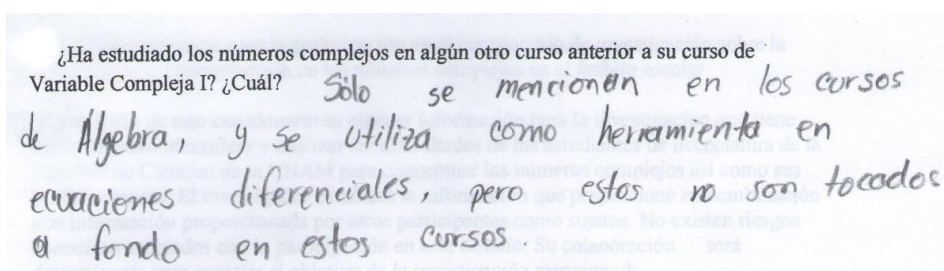 ¿Ha estudiado los números complejos en algún otro curso anterior a su curso de
Variable Compleja I? ¿Cuál? Sólo se mencionan en los cursos
de Algebra, y se utiliza como herramienta en
ecuaciones diferenciales, pero estos no son tocados
a fondo en estos cursos.